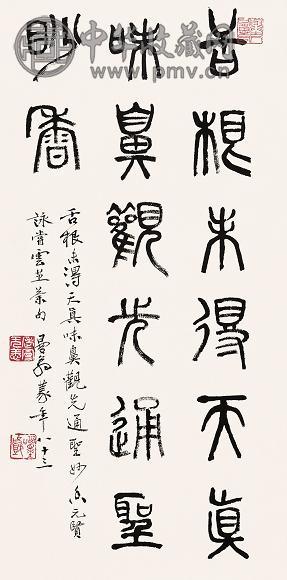 中华收藏网
www.pmv.cn
舌根未得天真
味鼻觀先通聖
妙香
舌根未得天真味鼻觀先通聖妙香元賢
詠嘗雲芝茶句 曼翁篆年八十三